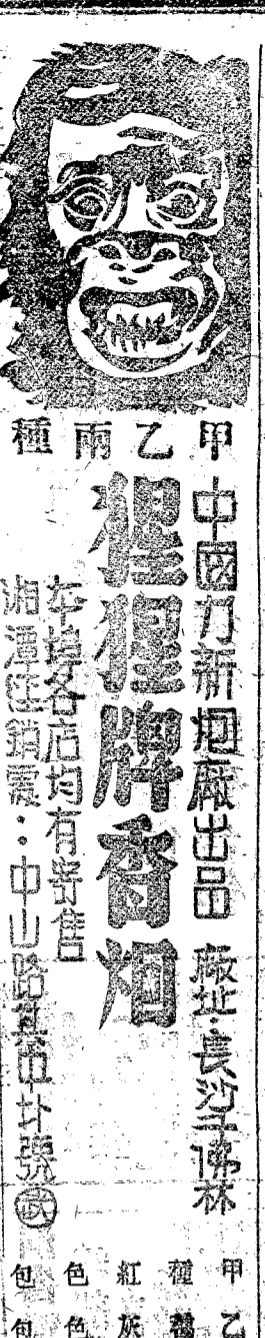 甲乙兩種
中國力新烟廠出品 廠址·長沙玉佛林
猩猩牌香烟
本埠各店均有寄售
湘潭經銷處：中山路
甲種紅色包
乙種灰色包